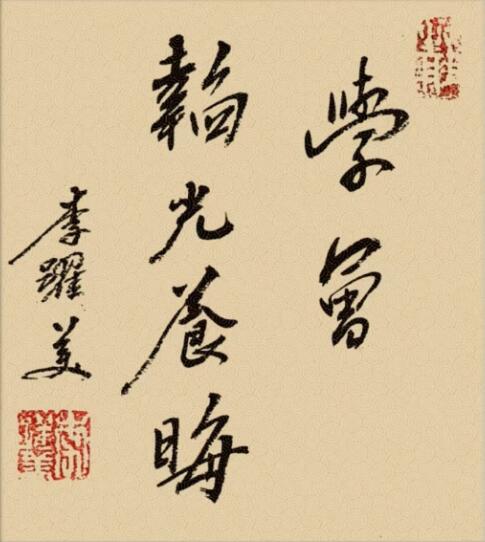 學會
韜光養晦
李躍美